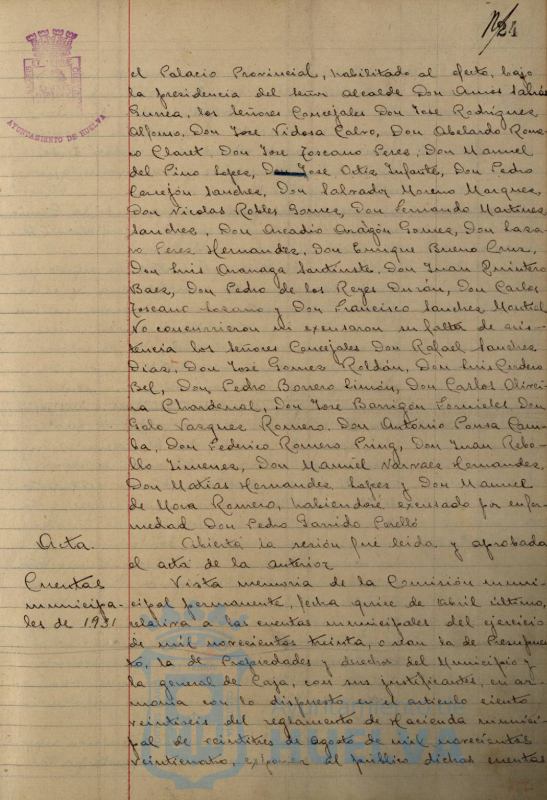 24
AYUNTAMIENTO DE HUELVA
el Palacio Provincial, habilitado al efecto, bajo
la presidencia del señor Alcalde Don Amos Sabrás
Gurrea, los señores Concejales Don José Rodríguez
Alfonso, Don José Vidosa Calvo, Don Abelardo Rome-
ro Claret, Don José Toscano Perez, Don Manuel
del Pino Lopez, Don José Ortiz Infante, Don Pedro
Cerrejón Sanchez, Don Salvador Moreno Marquez,
Don Nicolas Robles Gomez, Don Fernando Martinez
Sanchez, Don Arcadio Aragón Gomez, Don Laza-
ro Perez Hernandez, Don Enrique Bueno Cruz,
Don Luis Aranaga Don Juan Quintero
Baez, Don Pedro de los Reyes Durón, Don Carlos
Toscano Lozano y Don Francisco Sanchez Montiel
No concurrieron ni excusaron su falta de asis-
tencia los señores Concejales Don Rafael Sanchez
Díaz, Don José Gomez Roldán, Don Luis Cordero
Bel, Don Pedro Borrero Limón, Don Carlos Olivei-
ra Chardenal, Don José Barrigón Fornieles Don
Galo Vazquez Romero, Don António Ponsa Cam-
ba, Don Federico Romero Don Juan Rebo-
llo Jimenez, Don Manuel Narvaez Hernandez,
Don Matías Hernandez Lopez y Don Manuel
de Mora Romero, habiendose excusado por enfer-
medad Don Pedro Garrido Perelló
Acta. Abierta la sesión fué leida y aprobada
el acta de la anterior
Cuentas Vista memoria de la Comisión muni-
municipa- cipal permanente, fecha quice de Abril último,
les de 1931 relativa a las cuentas municipales del ejercicio
de mil novecientos treinta, o sean la de Presupues-
to, la de Propiedades y derechos del Municipio y
la general de Caja, con sus justificantes, en ar-
monia con lo dispuesto en el articulo ciento
veintiseis del reglamento de Hacienda munici-
pal de veintitres de Agosto de mil novecientos
veinticuatro, exponer al público dichas cuentas
HUELVA